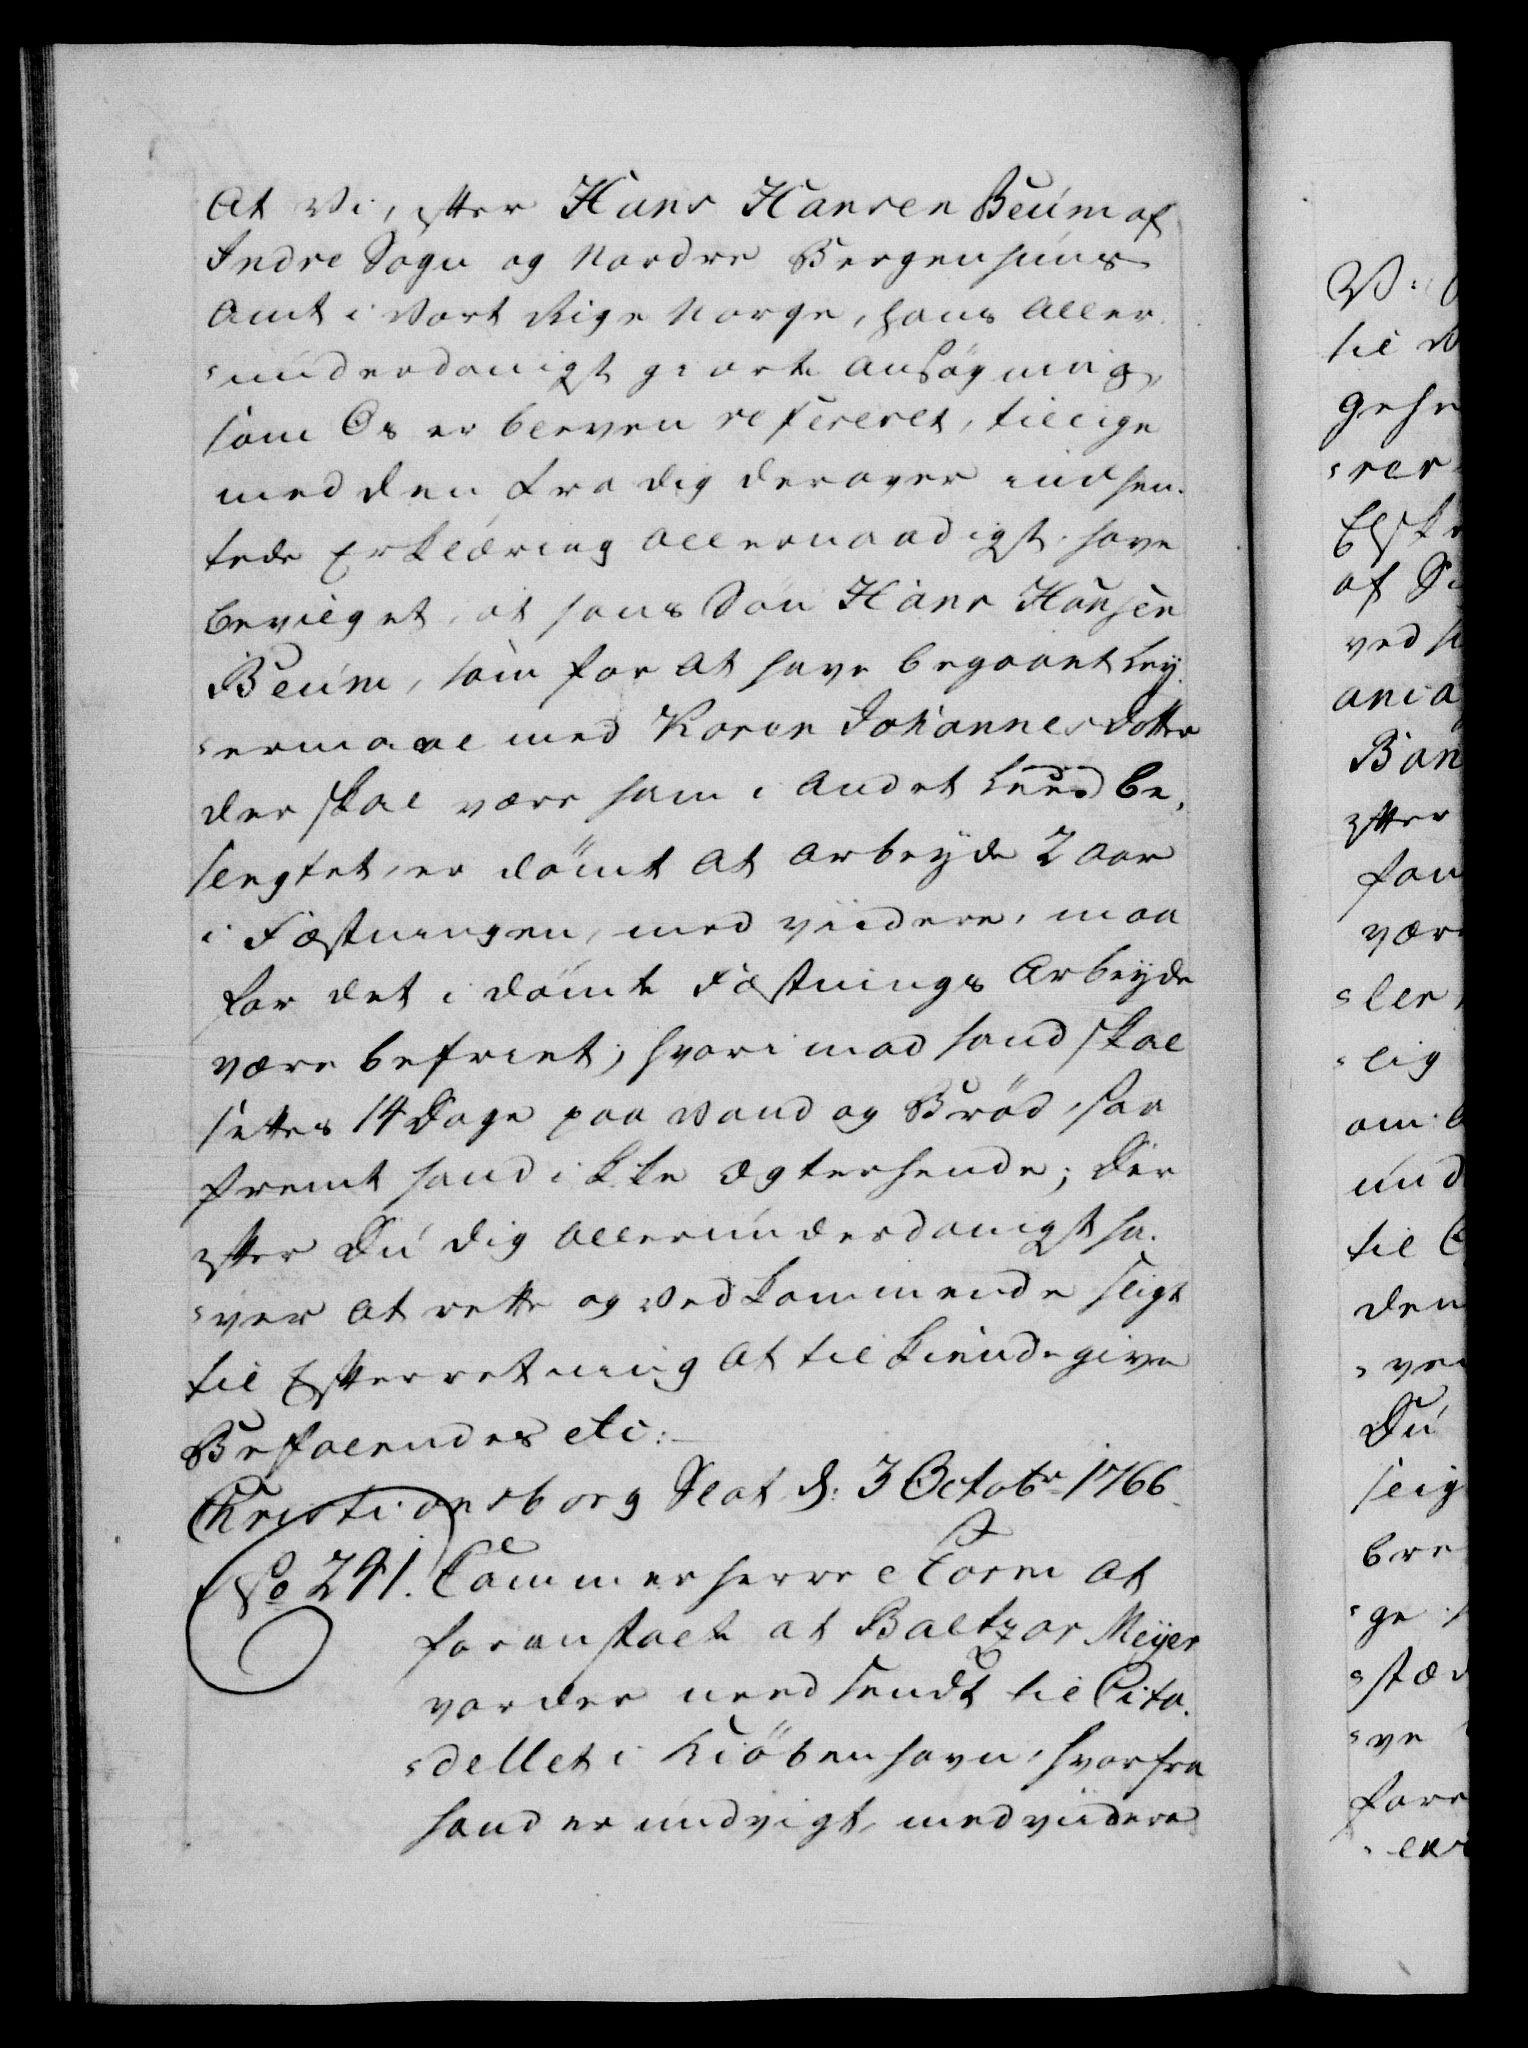 At Vi, efter Hans Hansen Beúm af
Indre Sogn og Nordre Bergenhuus
Amt i Vort Rige Norge, hans aller
=underdanigst giorte Ansøgning,
som Os er bleven refereret, tillige
med den fra dig derover indhen=
tede Erklæring allernaadigst have
bevilget, at hans Søn Hans Hansen
Beúm, som for at have begaaet Ley=
=ermaal med Karen Johannesdotter
der skal være ham i andet Leed be=
slegtet, er dömt at arbeyde 2 Aar
i Fæstningen, med viidere, maa
for det i dömte Fæstnings Arbeyde
være befriet; hvorimod hand skal
settes 14 Dage paa Vand og Bröd, saa
fremt hand ikke ægter hende; Der
efter Du dig allerunderdanigst ha=
=ver at rette og vedkommende sligt
til Efterretning at tilkiende give
Befalendes etc:
Christiansborg Slot d: 3 Octobr 1766
No 241. Cammerherre Storm at
foranstalte at Baltzar Meyer
vorder need sendt til Cita=
=dellet i Kiöbenhavn, hvorfra
hand er undvigt, med viidere
V:
til V
gehe
=rer
Elske
af S
ved
ania
Ban
efter
fan
være
=ler
=lig
om
und
til
den
=ve
Du
slig
bre
=ge
=stæ
=ve
fore